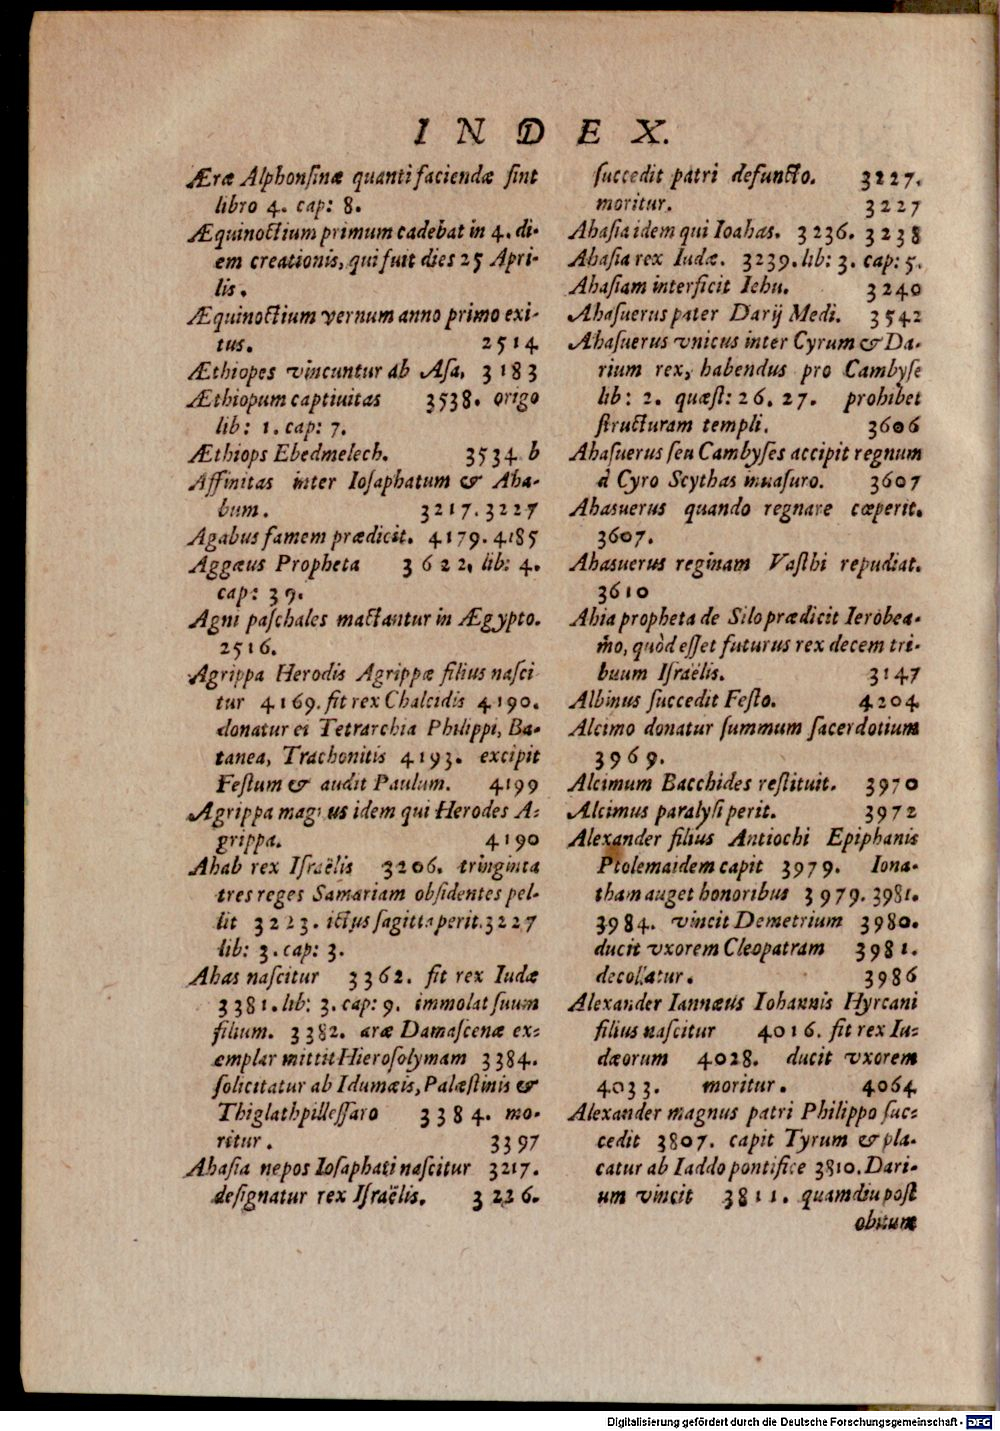 INDEX.
Æræ Alphonſinæ quanti faciendæ ſint
libro 4. cap: 8.
Æquinoctium primum cadebat in 4. di-
em creationis, qui fuit dies 25 Apri-
lis.
Æquinoctium vernum anno primo exi-
tus. 2514
Æthiopes vincuntur ab Aſa. 3183
Æthiopum captiuitas 3538. origo
lib: 1. cap: 7.
Æthiops Ebedmelech. 3534 b
Affinitas inter Ioſaphatum & Aha-
bum. 3217. 3227
Agabus famem prædicit. 4179. 4185
Aggæus Propheta 3622. lib: 4.
cap: 39.
Agni paſchales mactantur in Ægypto.
2516.
Agrippa Herodis Agrippæ filius naſci
tur 4169. fit rex Chalcidis 4190.
donatur ei Tetrarchia Philippi, Ba-
tanea, Trachonitis 4193. excipit
Feſtum & audit Paulum. 4199
Agrippa magnus idem qui Herodes A-
grippa. 4190
Ahab rex Iſraëlis 3206. tringinta
tres reges Samariam obſidentes pel-
lit 3223. ictus ſagitta perit. 3227
lib: 3. cap: 3.
Ahas naſcitur 3362. fit rex Iudæ
3381. lib: 3. cap: 9. immolat ſuum
filium. 3382. aræ Damaſcenæ ex-
emplar mittit Hieroſolymam 3384.
ſolicitatur ab Idumæis, Palæſtinis &
Thiglathpilleſſaro 3384. mo-
ritur. 3397
Ahaſia nepos Ioſaphati naſcitur 3217.
deſignatur rex Iſraëlis. 3226.
ſuccedit patri defuncto. 3227.
moritur. 3227
Ahaſia idem qui Ioahas. 3236. 3238
Ahaſia rex Iudæ. 3239. lib: 3. cap: 5.
Ahaſiam interficit Iehu. 3240
Ahaſuerus pater Darij Medi. 3542
Ahaſuerus vnicus inter Cyrum & Da-
rium rex, habendus pro Cambyſe
lib: 2. quæſt: 26. 27. prohibet
ſtructuram templi. 3606
Ahaſuerus ſeu Cambyſes accipit regnum
à Cyro Scythas inuaſuro. 3607
Ahasuerus quando regnare cœperit.
3607.
Ahasuerus reginam Vaſthi repudiat.
3610
Ahia propheta de Silo prædicit Ierobea-
mo, quòd eſſet futurus rex decem tri-
buum Iſraëlis. 3147
Albinus ſuccedit Feſto. 4204
Alcimo donatur ſummum ſacerdotium
3969.
Alcimum Bacchides reſtituit. 3970
Alcimus paralyſi perit. 3972
Alexander filius Antiochi Epiphanis
Ptolemaidem capit 3979. Iona-
tham auget honoribus 3979. 3981.
3984. vincit Demetrium 3980.
ducit vxorem Cleopatram 3981.
decollatur. 3986
Alexander Iannæus Iohannis Hyrcani
filius naſcitur 4016. fit rex Iu-
dæorum 4028. ducit vxorem
4033. moritur. 4064
Alexander magnus patri Philippo ſuc-
cedit 3807. capit Tyrum & pla-
catur ab Iaddo pontifice 3810. Dari-
um vincit 3811. quamdiu poſt
obitum
Digitalisierung gefördert durch die Deutsche Forschungsgemeinschaft - DFG